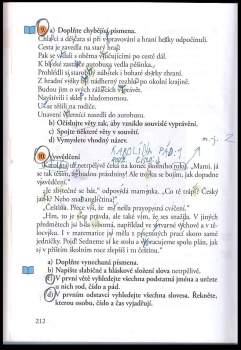 9. a) Doplňte chybějící písmena.
Chlapci a děvčata si při vypravování a hraní hezky odpočinuli.
Cesta je zavedla na starý hrad.
Pak se vydali s oběma výtečníky po cestě dál.
K bývalé zámecké vedla pěšinka.
Prohlédli si starobylý nábytek i bohaté sbírky zbraní.
Z hradní věže byl nádherný rozhled po okolní krajině.
Budou jim o svých zážitcích vyprávět.
Navštívili i sklep s hladomornou.
Už se těšili na rodiče.
Unavení všichni nasedli do autobusu.
b) Očíslujte věty tak, aby vzniklo souvislé vypravování.
c) Spojte některé věty v souvětí.
d) Vymyslete vhodný název.
10. Vysvědčení
Karolína netrpělivě čeká na konec školního roku. „Mami, já
se tak těším, že budou prázdniny! Ale trochu se bojím, jak dopadne
vysvědčení.“
„Je zbytečné se bát,“ odpovídá maminka. „Co tě trápí? Český
jazyk? Nebo snad angličtina?“
„Čeština. Přece víš, že mě mělo pravopisná cvičení.“
„Hm, to je asi pravda, ale také vím, že ses snažila. V jiných
předmětech jsi báječná, například ve výtvarné výchově a v
tělocviku. I v matematice jsi měla z písemných prací skoro samé
jedničky. Pojď! Sedneme si ke stolu a vypracujeme spolu plán, jak
si v příštím školním roce zlepšit i tu češtinu.
a) Doplňte vynechaná písmena.
b) Napište slabičné a hláskové složení slova netrpělivě.
c) V první větě vyhledejte všechna podstatná jména a určete
u nich rod, číslo a pád.
d) V prvním odstavci vyhledejte všechna slovesa. Řekněte,
kterou osobu, číslo a čas vyjadřují.
212